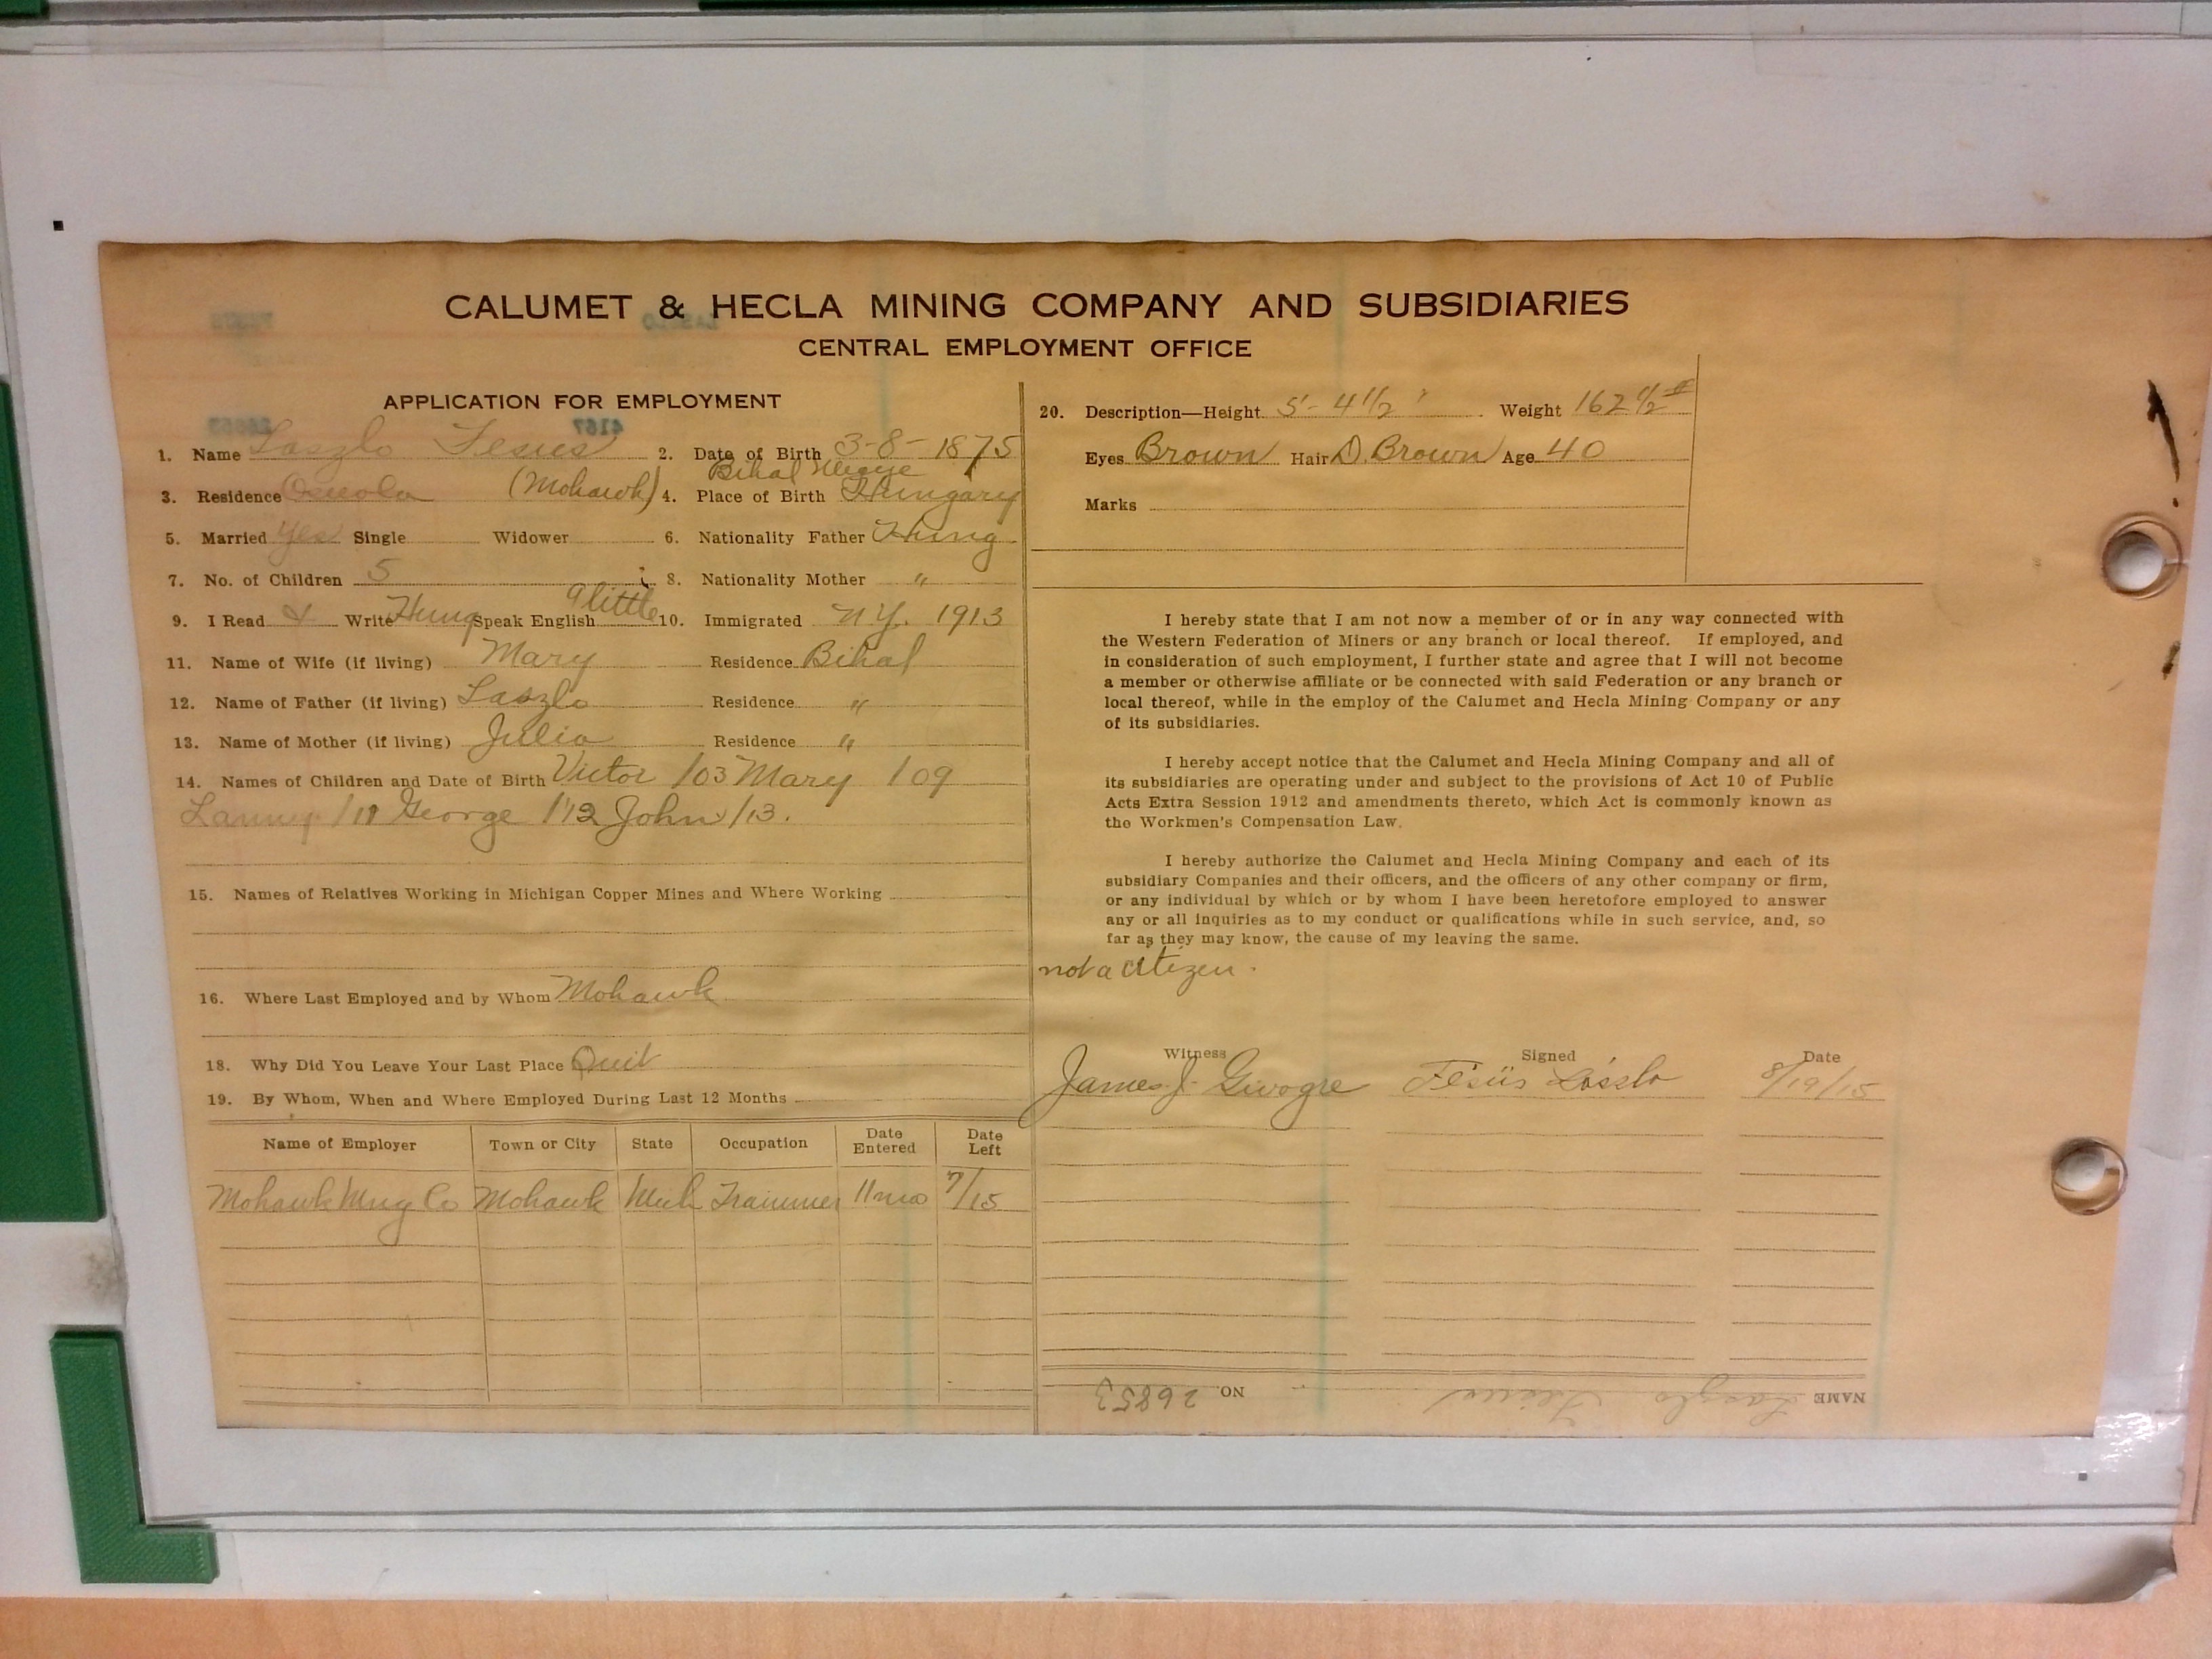 CALUMET & HECLA MINING COMPANY AND SUBSIDIARIES
CENTRAL EMPLOYMENT OFFICE
APPLICATION FOR EMPLOYMENT
1. Name Laszlo Fesus 2. Date of Birth 3-8-1875
Bihal Megye
3. Residence Osceola (Mohawk) 4. Place of Birth Hungary
5. Married Yes Single Widower 6. Nationality Father Hung
7. No. of Children 5 8. Nationality Mother "
9. I Read & Write Hung Speak English a little 10. Immigrated N.Y. 1913
11. Name of Wife (if living) Mary Residence Bihal
12. Name of Father (if living) Laszlo Residence "
13. Name of Mother (if living) Julia Residence "
14. Names of Children and Date of Birth Victor /03 Mary /09
/11 George /12 John /13.
15. Names of Relatives Working in Michigan Copper Mines and Where Working
16. Where Last Employed and by Whom Mohawk
18. Why Did You Leave Your Last Place Quit
19. By Whom, When and Where Employed During Last 12 Months
Name of Employer Town or City State Occupation Date Entered Date Left
Mohawk Mng Co Mohawk Mich Trammer 11 mo 7/15
20. Description—Height 5'-4 1/2" Weight 162 1/2 #
Eyes Brown Hair D. Brown Age 40
Marks
I hereby state that I am not now a member of or in any way connected with
the Western Federation of Miners or any branch or local thereof. If employed, and
in consideration of such employment, I further state and agree that I will not become
a member or otherwise affiliate or be connected with said Federation or any branch or
local thereof, while in the employ of the Calumet and Hecla Mining Company or any
of its subsidiaries.
I hereby accept notice that the Calumet and Hecla Mining Company and all of
its subsidiaries are operating under and subject to the provisions of Act 10 of Public
Acts Extra Session 1912 and amendments thereto, which Act is commonly known as
the Workmen's Compensation Law.
I hereby authorize the Calumet and Hecla Mining Company and each of its
subsidiary Companies and their officers, and the officers of any other company or firm,
or any individual by which or by whom I have been heretofore employed to answer
any or all inquiries as to my conduct or qualifications while in such service, and, so
far as they may know, the cause of my leaving the same.
not a citizen.
Witness Signed Date
James J. Fésüs László 8/19/15
NAME Laszlo Fesus NO. 26853